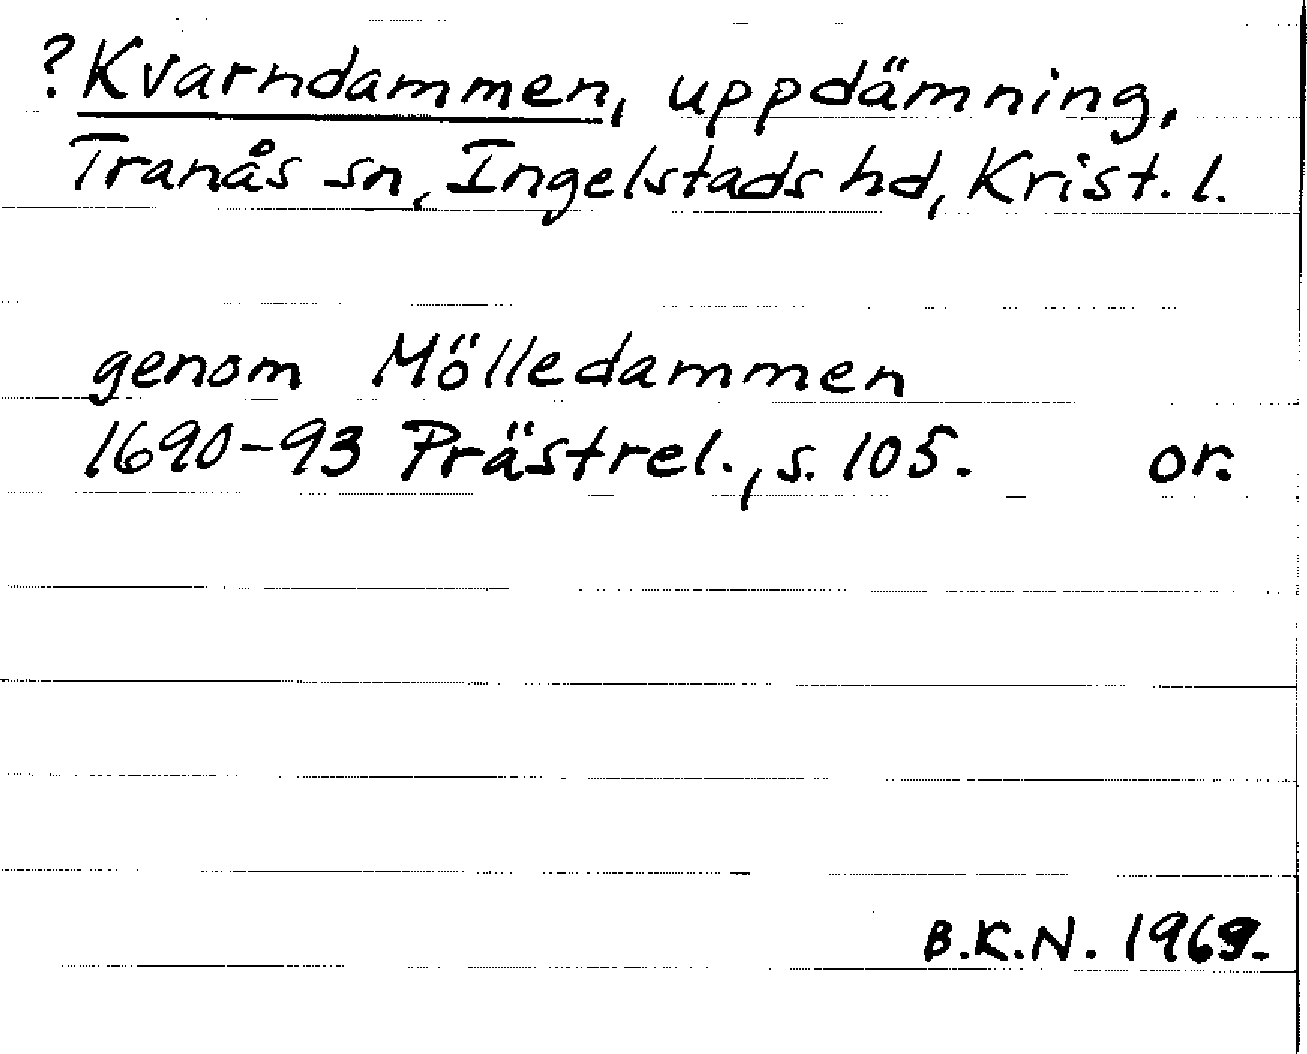 ?Kvarndammen, uppdämning,
Tranås sn, Ingelstads hd, Krist. l.
genom Mölledammen
1690-93 Prästrel., s. 105. or.
B.K.N. 1969.